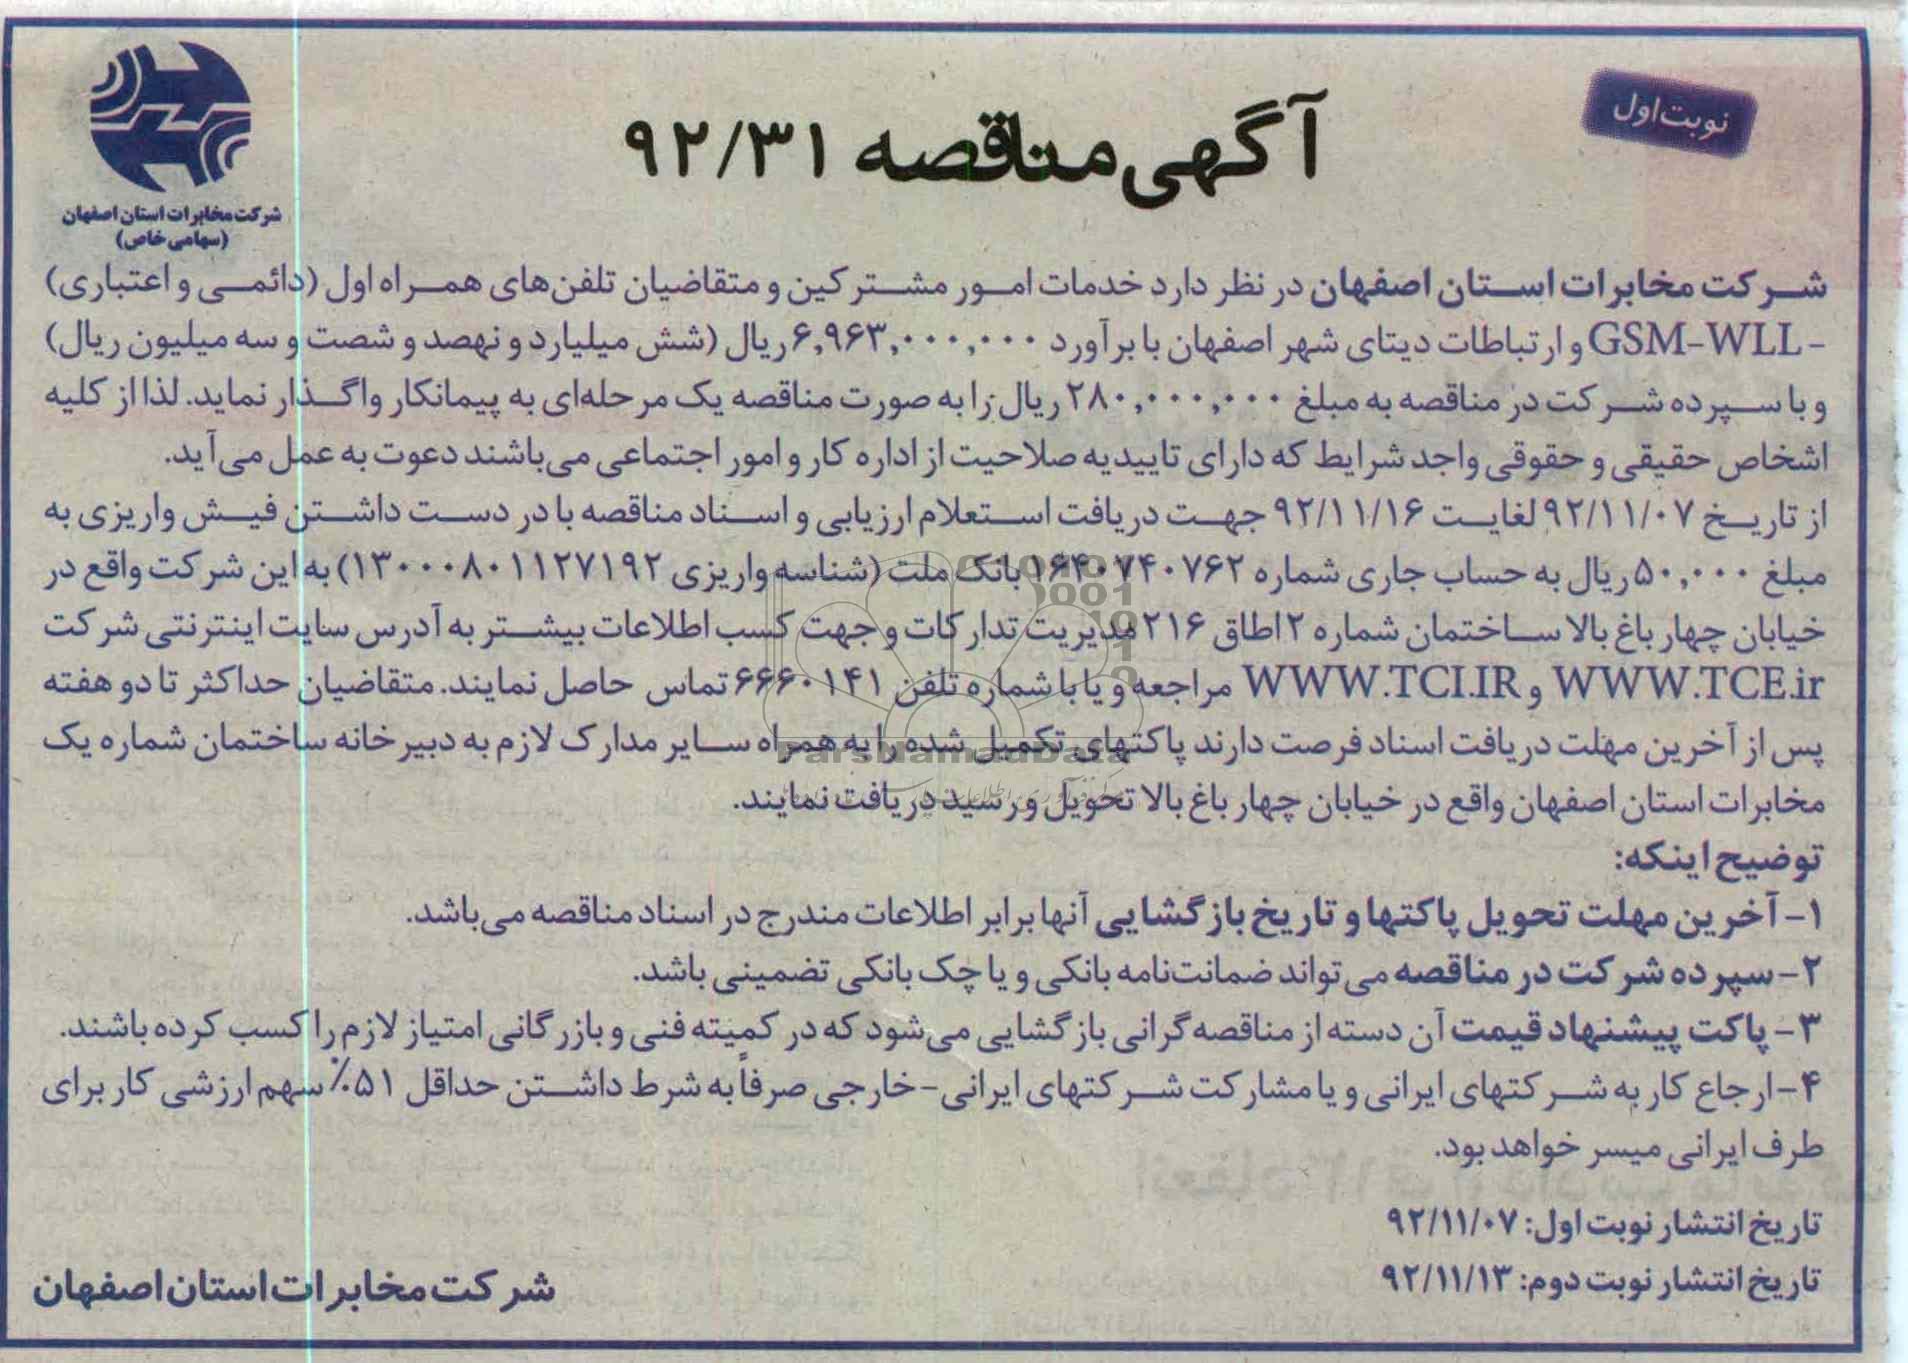 نوبت اول
آگهی مناقصه ۹۲/۳۱
شرکت مخابرات استان اصفهان
(سهامی خاص)
شرکت مخابرات استان اصفهان در نظر دارد خدمات امور مشترکین و متقاضیان تلفن‌های همراه اول (دائمی و اعتباری)
-GSM-WLL و ارتباطات دیتای شهر اصفهان با برآورد ۶,۹۶۳,۰۰۰,۰۰۰ ریال (شش میلیارد و نهصد و شصت و سه میلیون ریال)
و با سپرده شرکت در مناقصه به مبلغ ۲۸۰,۰۰۰,۰۰۰ ریال را به صورت مناقصه یک مرحله‌ای به پیمانکار واگذار نماید. لذا از کلیه
اشخاص حقیقی و حقوقی واجد شرایط که دارای تاییدیه صلاحیت از اداره کار و امور اجتماعی می‌باشند دعوت به عمل می‌آید.
از تاریخ ۹۲/۱۱/۰۷ لغایت ۹۲/۱۱/۱۶ جهت دریافت استعلام ارزیابی و اسناد مناقصه با در دست داشتن فیش واریزی به
مبلغ ۵۰,۰۰۰ ریال به حساب جاری شماره ۱۶۴۰۷۴۰۷۶۲ بانک ملت (شناسه واریزی ۱۳۰۰۰۸۰۱۱۲۷۱۹۲) به این شرکت واقع در
خیابان چهارباغ بالا ساختمان شماره ۲ اطاق ۲۱۶ مدیریت تدارکات و جهت کسب اطلاعات بیشتر به آدرس سایت اینترنتی شرکت
WWW.TCE.ir و WWW.TCI.IR مراجعه و یا با شماره تلفن ۶۶۶۰۱۴۱ تماس حاصل نمایند. متقاضیان حداکثر تا دو هفته
پس از آخرین مهلت دریافت اسناد فرصت دارند پاکتهای تکمیل شده را به همراه سایر مدارک لازم به دبیرخانه ساختمان شماره یک
مخابرات استان اصفهان واقع در خیابان چهارباغ بالا تحویل و رسید دریافت نمایند.
توضیح اینکه:
۱- آخرین مهلت تحویل پاکتها و تاریخ بازگشایی آنها برابر اطلاعات مندرج در اسناد مناقصه می‌باشد.
۲- سپرده شرکت در مناقصه می‌تواند ضمانت‌نامه بانکی و یا چک بانکی تضمینی باشد.
۳- پاکت پیشنهاد قیمت آن دسته از مناقصه‌گرانی بازگشایی می‌شود که در کمیته فنی و بازرگانی امتیاز لازم را کسب کرده باشند.
۴- ارجاع کار به شرکتهای ایرانی و یا مشارکت شرکتهای ایرانی-خارجی صرفاً به شرط داشتن حداقل ۵۱٪ سهم ارزشی کار برای
طرف ایرانی میسر خواهد بود.
تاریخ انتشار نوبت اول: ۹۲/۱۱/۰۷
تاریخ انتشار نوبت دوم: ۹۲/۱۱/۱۳
شرکت مخابرات استان اصفهان
ParsNamadData